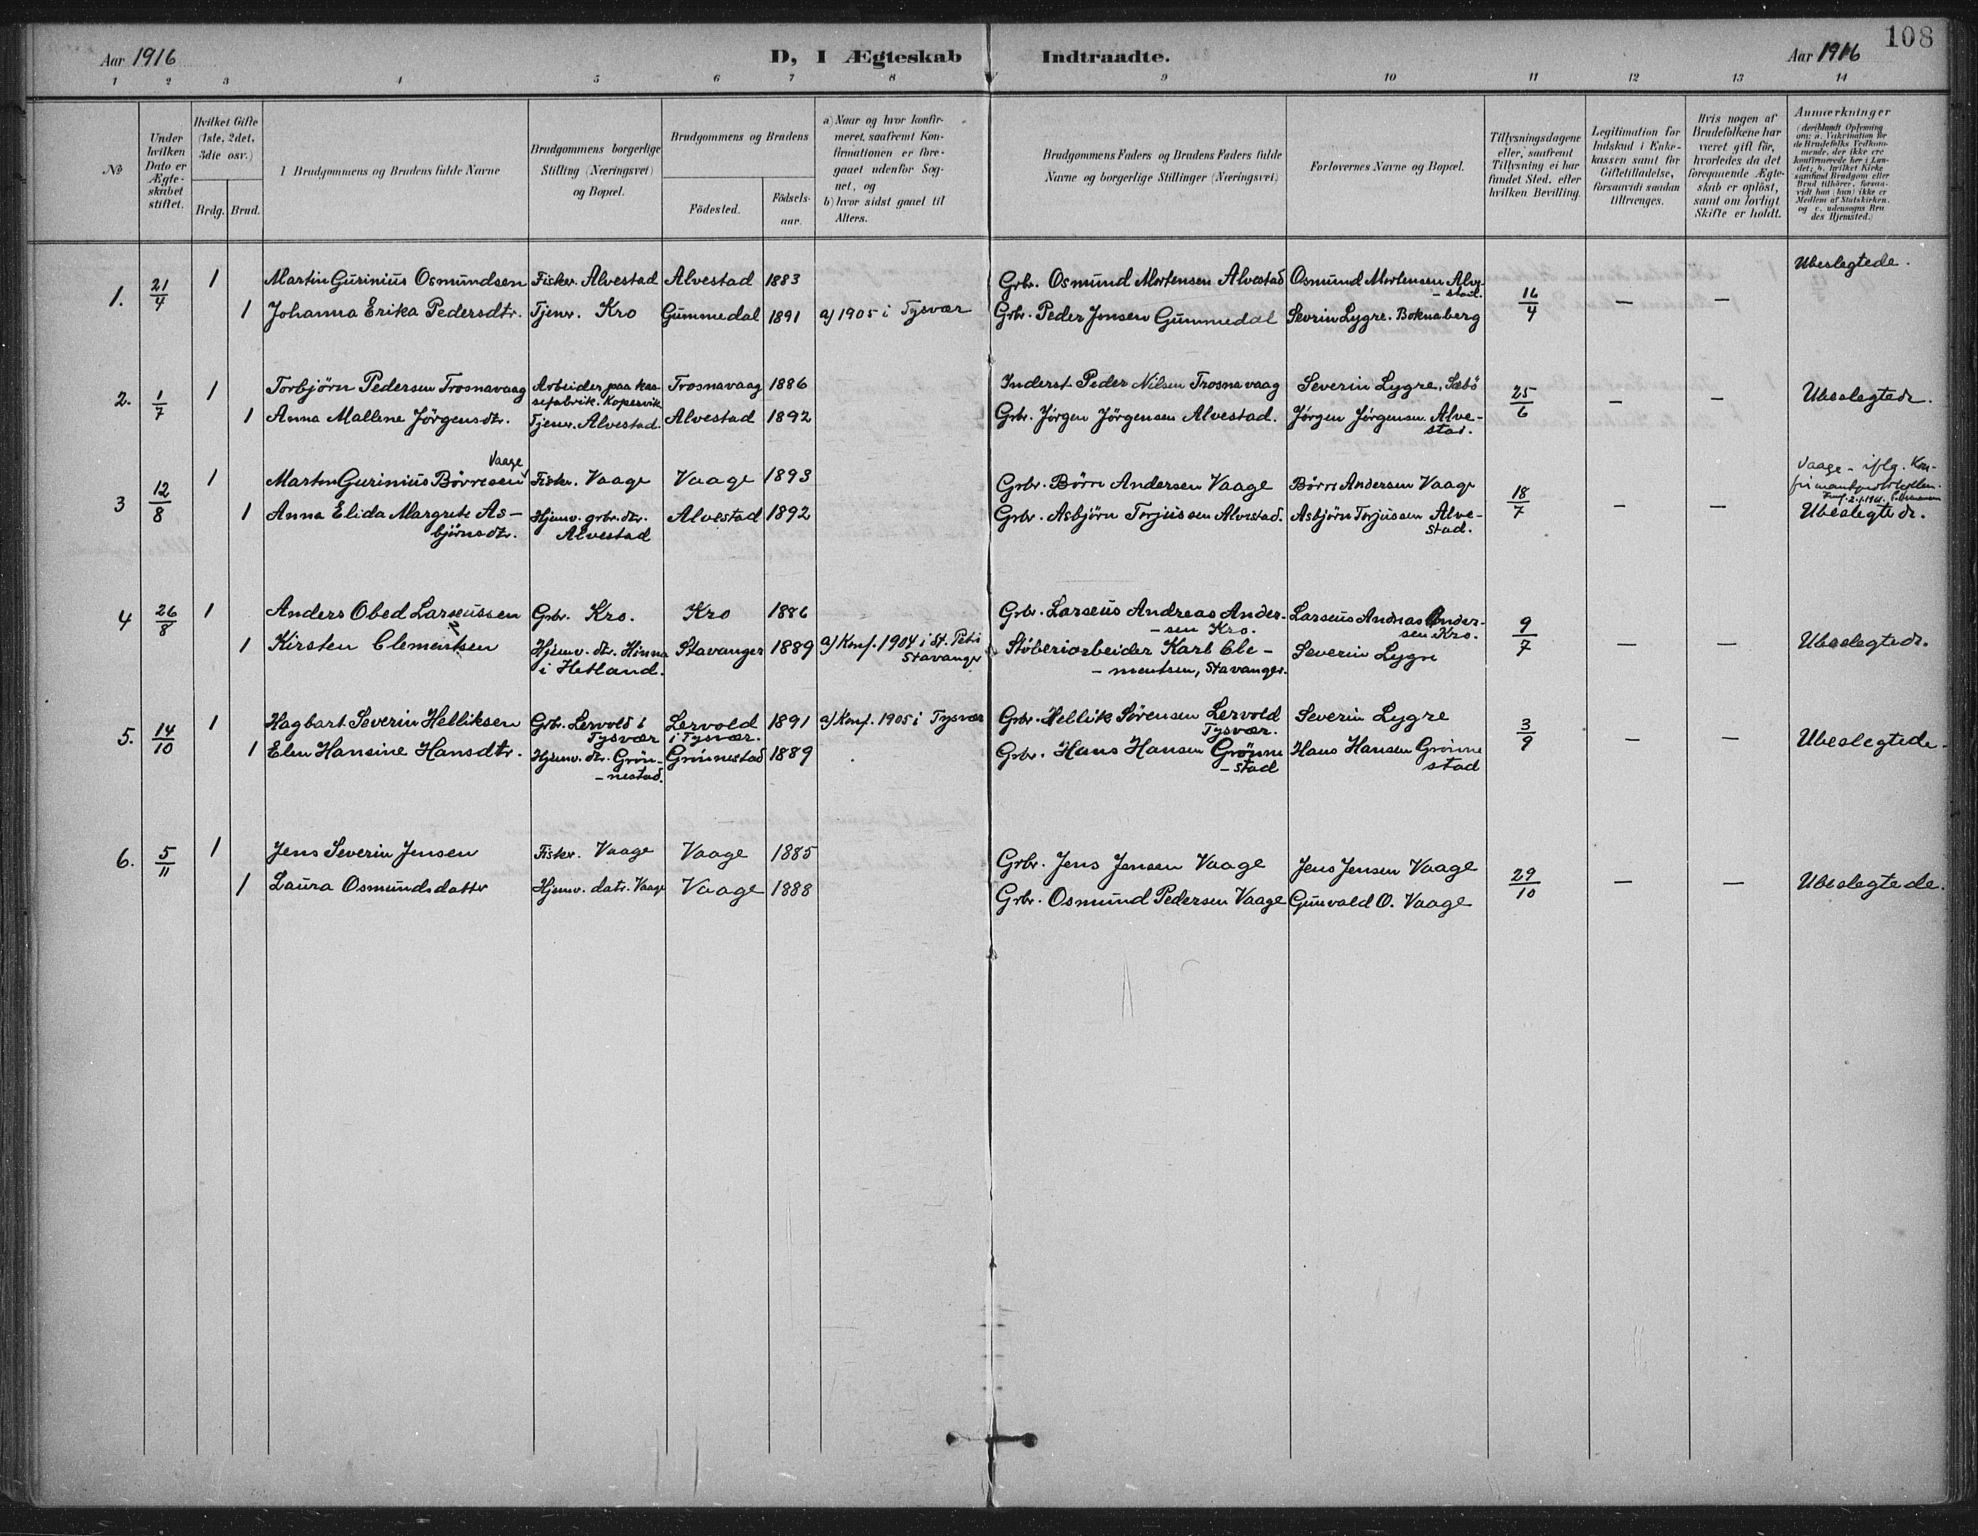 108
Aar 1916 D, I Ægteskab Indtraadte. Aar 1916
1 2 3 4 5 6 7 8 9 10 11 12 13 14
№
Under hvilken Dato er Ægteskabet stiftet.
Hvilket Gifte (1ste, 2det, 3die osv.)
Brdg. Brud.
Brudgommens og Brudens fulde Navne
Brudgommens borgerlige Stilling (Næringsvei) og Bopæl.
Brudgommens og Brudens
Fødested.
Fødselsaar.
a) Naar og hvor konfirmeret, saafremt Konfirmationen er foregaaet udenfor Sognet, og
b) hvor sidst gaaet til Alters.
Brudgommens Faders og Brudens Faders fulde Navne og borgerlige Stillinger (Næringsvei)
Forlovernes Navne og Bopæl.
Tillysningsdagene eller, saafremt Tillysning ei har fundet Sted, efter hvilken Bevilling.
Legitimation for Indskud i Enkekassen samt for Giftetilladelse, forsaavidt saadan tiltrænges.
Hvis nogen af Brudefolkene har været gift før, hvorledes da det foregaaende Ægteskab er opløst, samt om lovligt Skifte er holdt.
Anmærkninger
(deriblandt Oplysning om: a. Vakcination for de Brudefolks Vedkommende, der ikke ere konfirmerede her i Landet; b. hvilket Kirkesamfund Brudgom eller Brud tilhører, forsaavidt han (hun) ikke er Medlem af Statskirken, og c. udensogns Brudes Hjemsted.)
1. 21/4 1 Martin Gurinius Osmundsen Fisker. Alvestad Alvestad 1883 Grbr. Osmund Mortensen Alvestad Osmund Mortensen Alve-stad. 16/4 — — Ubeslegtede.
1 Johanna Erika Pedersdtr. Tjenr. Kro Gummedal 1891 a) 1905 i Tysvær Grbr. Peder Jonsen Gummedal Sevrin Lygre. Boknaberg
2. 1/7 1 Torbjørn Pedersen Trosnavaag Arbeider paa kas-sefabrik. Kopervik Trosnavaag 1886 Inderst Peder Nilsen Trosnavaag Severin Lygre, Sæbö 25/6 — — Ubeslegtede.
1 Anna Mallene Jörgensdtr. Tjenr. Alvestad Alvestad 1892 Grbr. Jörgen Jörgensen Alvestad. Jörgen Jörgensen Alve-stad.
3 12/8 1 Martin Gurinius Börresen Vaage Fisker. Vaage Vaage 1893 Grbr. Börre Andersen Vaage Börre Andersen Vaage 18/7 — — Vaage - iflg. Kon-firmantprotokollen.
1 Anna Elida Margrete As-björnsdtr. Hjemv. grbr. dtr. Alvestad Alvestad 1892 Grbr. Asbjörn Torjussen Alvestad. Asbjörn Torjussen Alve-stad. Ubeslegtede.
4 26/8 1 Anders Obed Larseussen Grbr. Kro. Kro 1886 Grbr. Larseus Andreas Ander-sen Kro. Larseus Andreas Ander-sen Kro. 9/7 — — Ubeslegtede.
1 Kirsten Clementsen Hjemv. dtr. Hinna i Hetland. Stavanger 1889 a) Konf. 1904 i St. Petri Stavanger Støberiarbeider Karl Cle-mentsen, Stavanger. Severin Lygre
5. 14/10 1 Hagbart Severin Helliksen Grbr. Lervold i Tysvær Lervold i Tysvær. 1891 a) Konf. 1905 i Tysvær Grbr. Hellik Sörensen Lervold Tysvær. Severin Lygre 3/9 — — Ubeslegtede.
1 Elen Hansine Hansdtr. Hjemv. dtr. Grön-nestad. Grönnestad 1889 Grbr. Hans Hansen Grönne-stad Hans Hansen Grönne stad
6. 5/11 1 Jens Severin Jensen Fisker. Vaage Vaage 1885 Grbr. Jens Jensen Vaage Jens Jensen Vaage 29/10 — — Ubeslegtede.
1 Laura Osmundsdatter Hjemv. datr. Vaage Vaage 1888 Grbr. Osmund Pedersen Vaage Gunvald O. Vaage